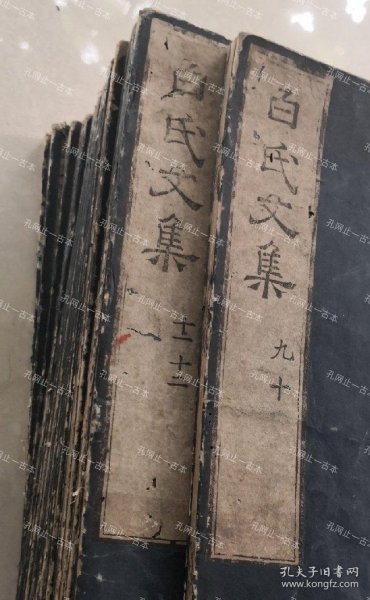 白氏文集
九十
白氏文集
十一十二
孔网止一古本
孔夫子旧书网
www.kongfz.com